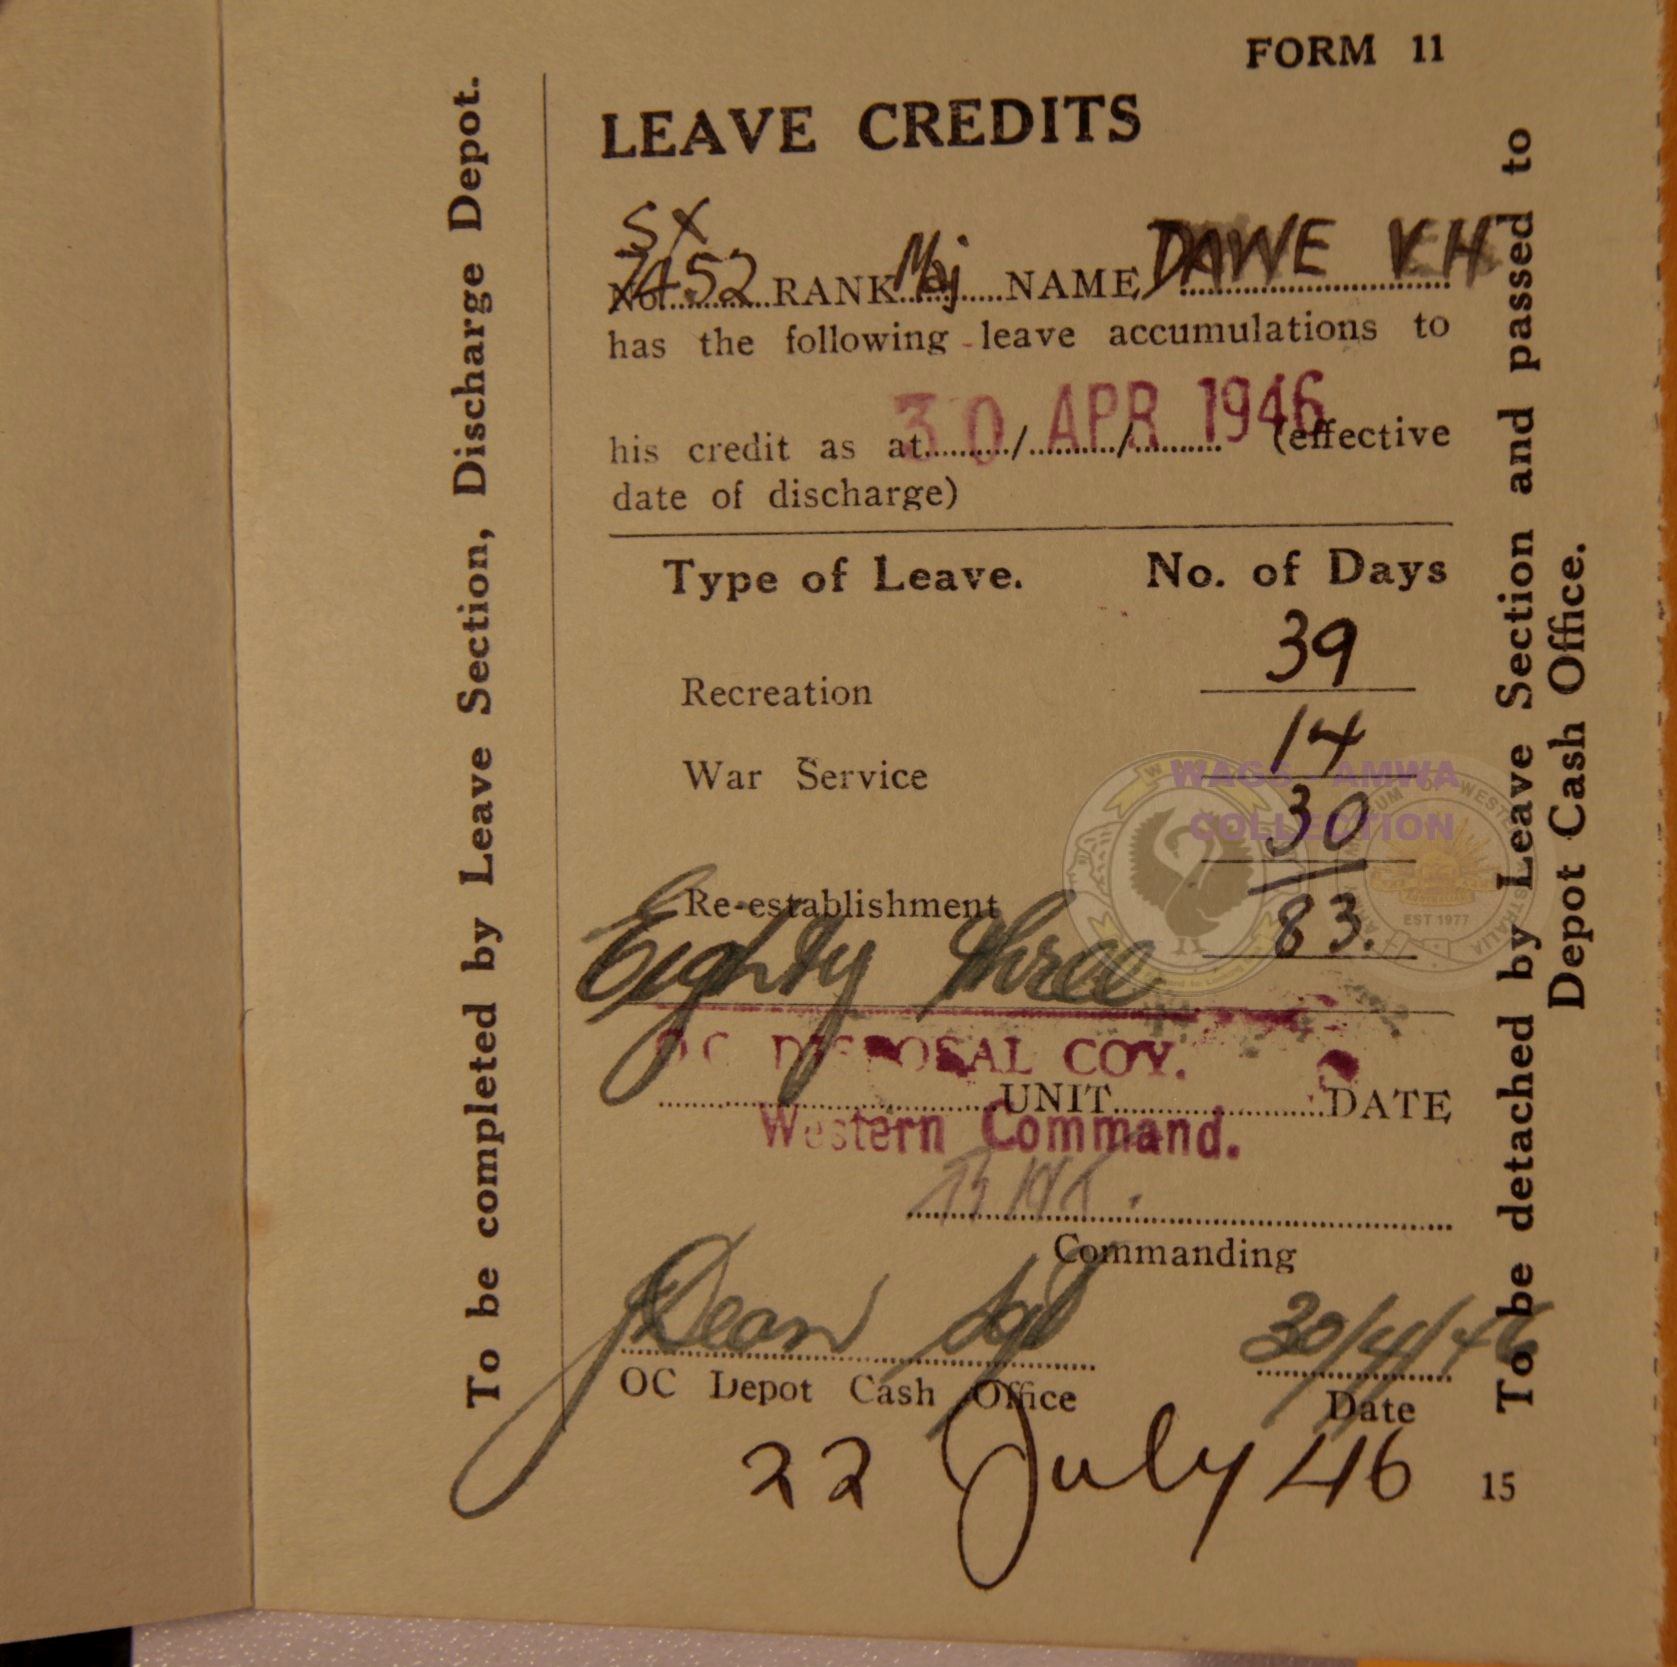 FORM 11
LEAVE CREDITS
SX
No. 7452 RANK Maj NAME DAWE V.H
has the following leave accumulations to
his credit as at 30/APR/1946 (effective
date of discharge)
Type of Leave. No. of Days
39
Recreation
14
War Service
WAGS - AMWA
COLLECTION
30
Re-establishment
83.
Eighty three
EST 1977
OC DISPOSAL COY.
UNIT DATE
Western Command.
Commanding
Dean Sgt 30/4/46
OC Depot Cash Office Date
22 July 46
15
To be completed by Leave Section, Discharge Depot.
To be detached by Leave Section and passed to
Depot Cash Office.